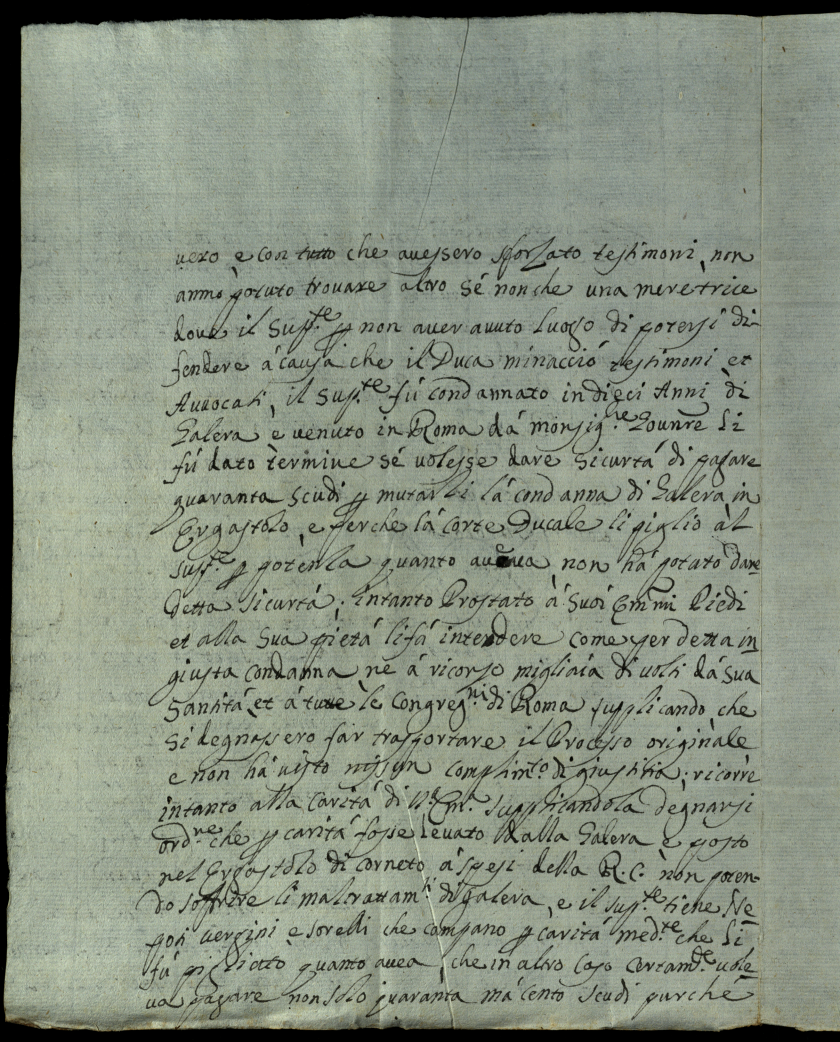 vero e con tutto che avessero sforzato testimoni, non
anno potuto trovare altro sé non che una meretrice
dove il Supp.te p non aver avuto luogo di potersi di-
fendere á causa che il Duca minacció testimoni et
Avvocati, il Supp.te fú condannato in dieci Anni di
Galera e venuto in Roma dá monsig.re li
fú dato termine sé volesse dare Sicurtá di pagare
quaranta scudi p mutarli lá condanna di Galera in
Ergastolo, e perche lá Corte Ducale li piglio al
supp.te p potenza quanto aveva non há potuto dare
detta sicurtá; intanto Prostato á Suoi Emmi Piedi
et alla Sua pietá li fá intendere come per detta in
giusta condanna ne á ricorso migliaia di volti dá Sua
Santitá et á tutte le Congreg.ni di Roma supplicando che
si degnassero far trasportare il Processo originale
e non há visto nissun complim.to di giustitia; ricorre
intanto alla Caritá di V.a Em. supplicandola degnarsi
ord.re che p caritá fosse levato dalla Galera e posto
nel Ergastolo di Corneto á spesi della R. C. non poten-
do soffrire li maltrattam.ti di galera, e il supp.te tiene Ne
poti vergini e sorelli che campano p caritá med.te che li
fú pigliato quanto avea, che in altro caso certam.te vole
va pagare non solo quaranta má cento scudi purché